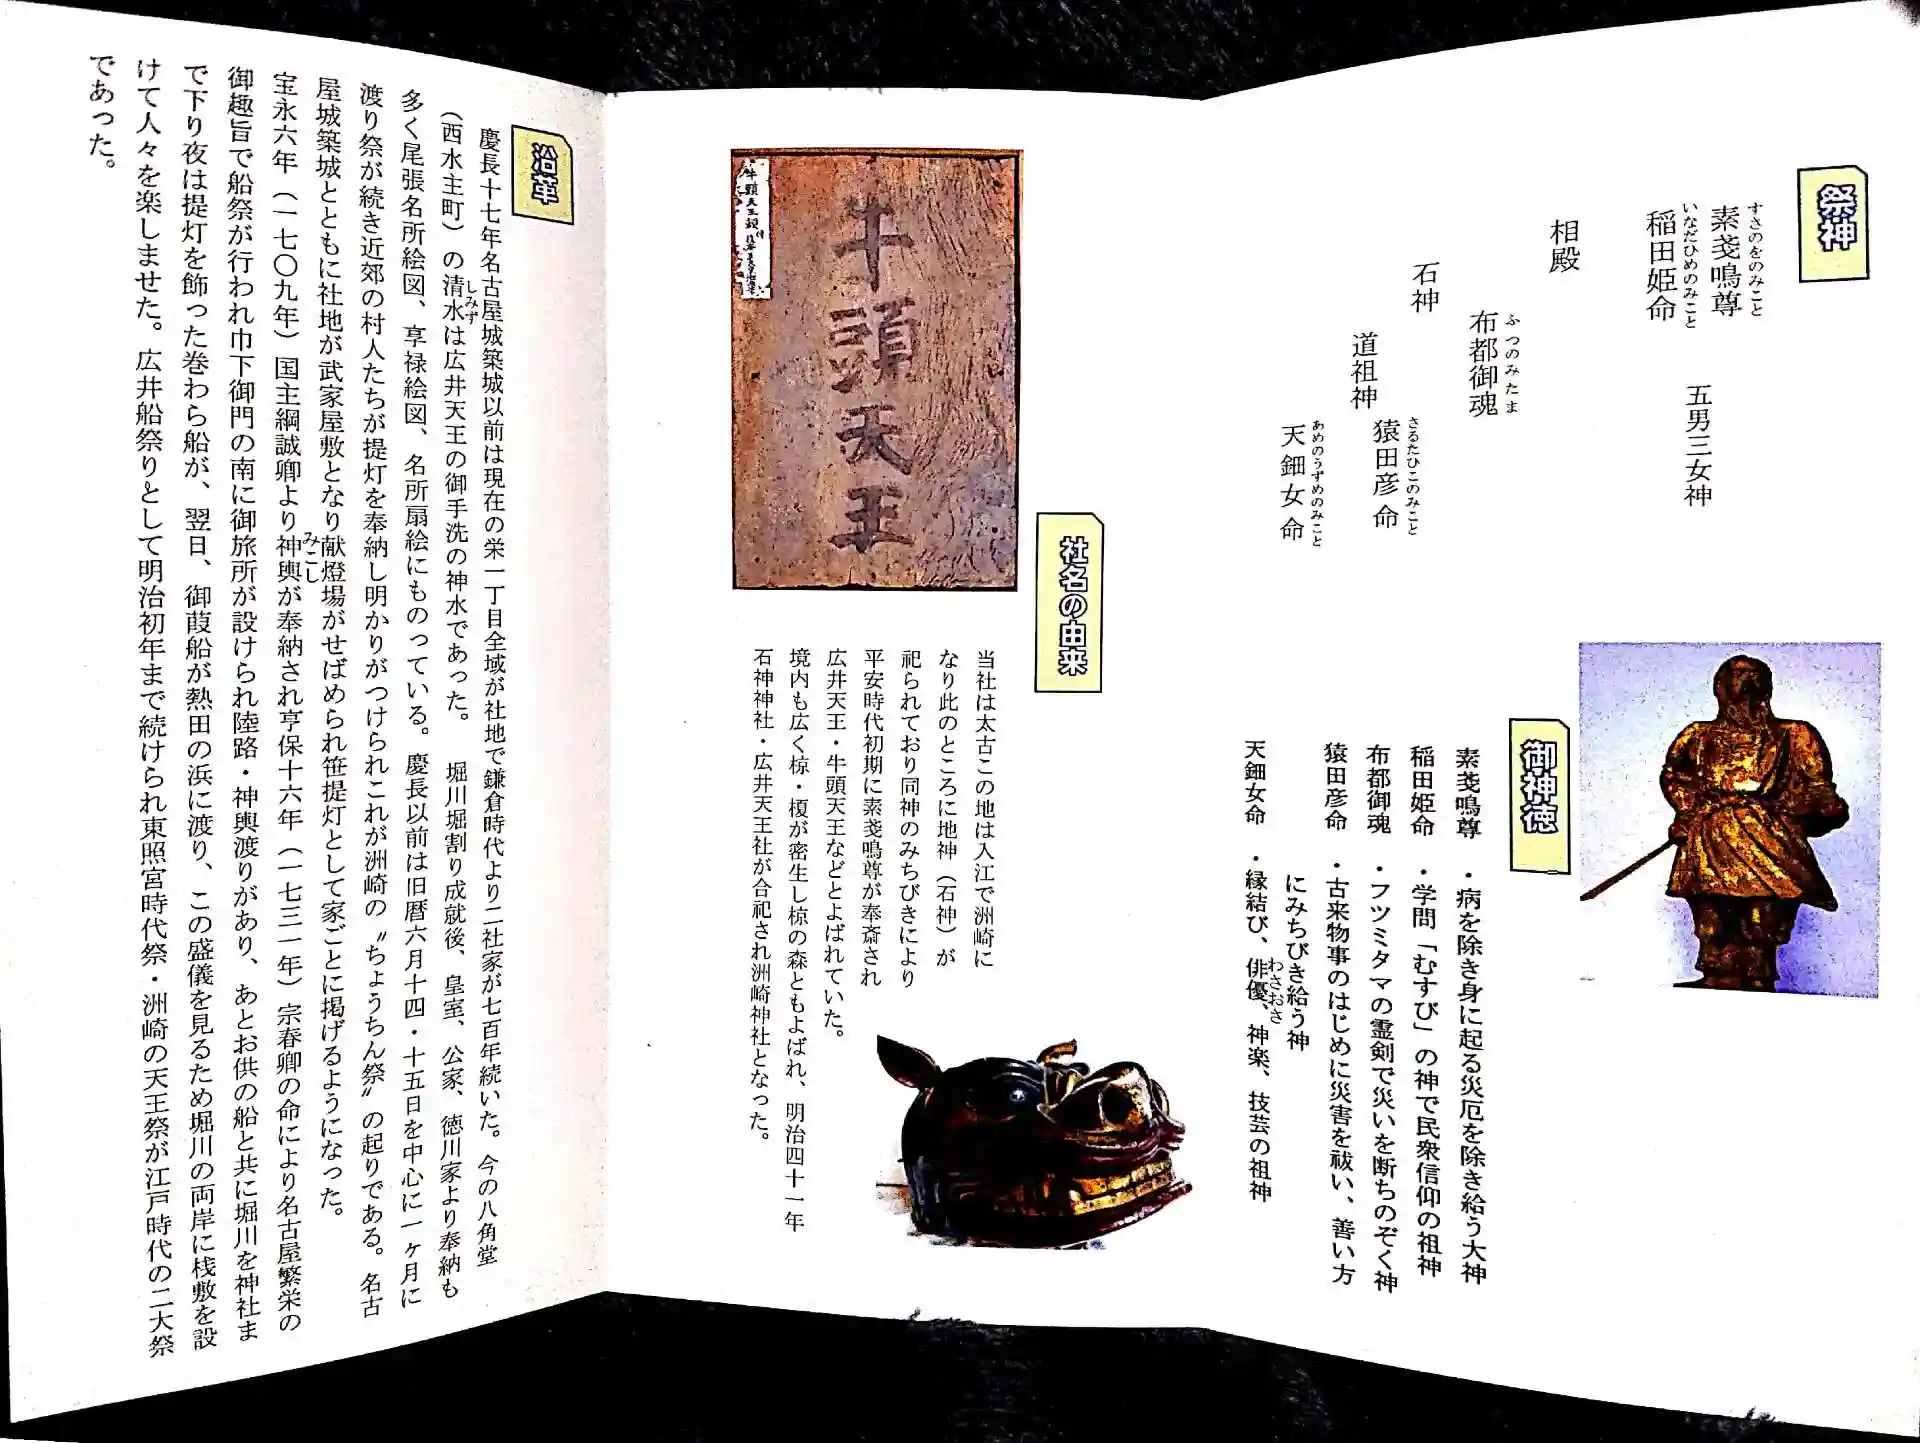 祭神
すさのをのみこと
素戔嗚尊
いなだひめのみこと
稲田姫命
五男三女神
相殿
ふつのみたま
布都御魂
石神
道祖神
さるたひこのみこと
猿田彦命
あめのうずめのみこと
天鈿女命
御神徳
素戔嗚尊・病を除き身に起る災厄を除き給う大神
稲田姫命・学問「むすび」の神で民衆信仰の祖神
布都御魂・フツミタマの霊剣で災いを断ちのぞく神
猿田彦命・古来物事のはじめに災害を祓い、善い方
にみちびき給う神
わざおさ
天鈿女命・縁結び、俳優、神楽、技芸の祖神
社名の由来
牛頭天王
当社は太古この地は入江で洲崎に
なり此のところに地神（石神）が
祀られており同神のみちびきにより
平安時代初期に素戔嗚尊が奉斎され
広井天王・牛頭天王などとよばれていた。
境内も広く椋・榎が密生し椋の森ともよばれ、明治四十一年
石神神社・広井天王社が合祀され洲崎神社となった。
沿革
慶長十七年名古屋城築城以前は現在の栄一丁目全域が社地で鎌倉時代より二社家が七百年続いた。今の八角堂
しみず
（西水主町）の清水は広井天王の御手洗の神水であった。 堀川堀割り成就後、皇室、公家、徳川家より奉納も
多く尾張名所絵図、享禄絵図、名所扇絵にものっている。慶長以前は旧暦六月十四・十五日を中心に一ヶ月に
渡り祭が続き近郊の村人たちが提灯を奉納し明かりがつけられこれが洲崎の〝ちょうちん祭〟の起りである。名古
屋城築城とともに社地が武家屋敷となり献燈場がせばめられ笹提灯として家ごとに掲げるようになった。
みこし
宝永六年（一七〇九年）国主綱誠卿より神輿が奉納され亨保十六年（一七三一年）宗春卿の命により名古屋繁栄の
御趣旨で船祭が行われ巾下御門の南に御旅所が設けられ陸路・神輿渡りがあり、あとお供の船と共に堀川を神社ま
で下り夜は提灯を飾った巻わら船が、翌日、御葭船が熱田の浜に渡り、この盛儀を見るため堀川の両岸に桟敷を設
けて人々を楽しませた。広井船祭りとして明治初年まで続けられ東照宮時代祭・洲崎の天王祭が江戸時代の二大祭
であった。